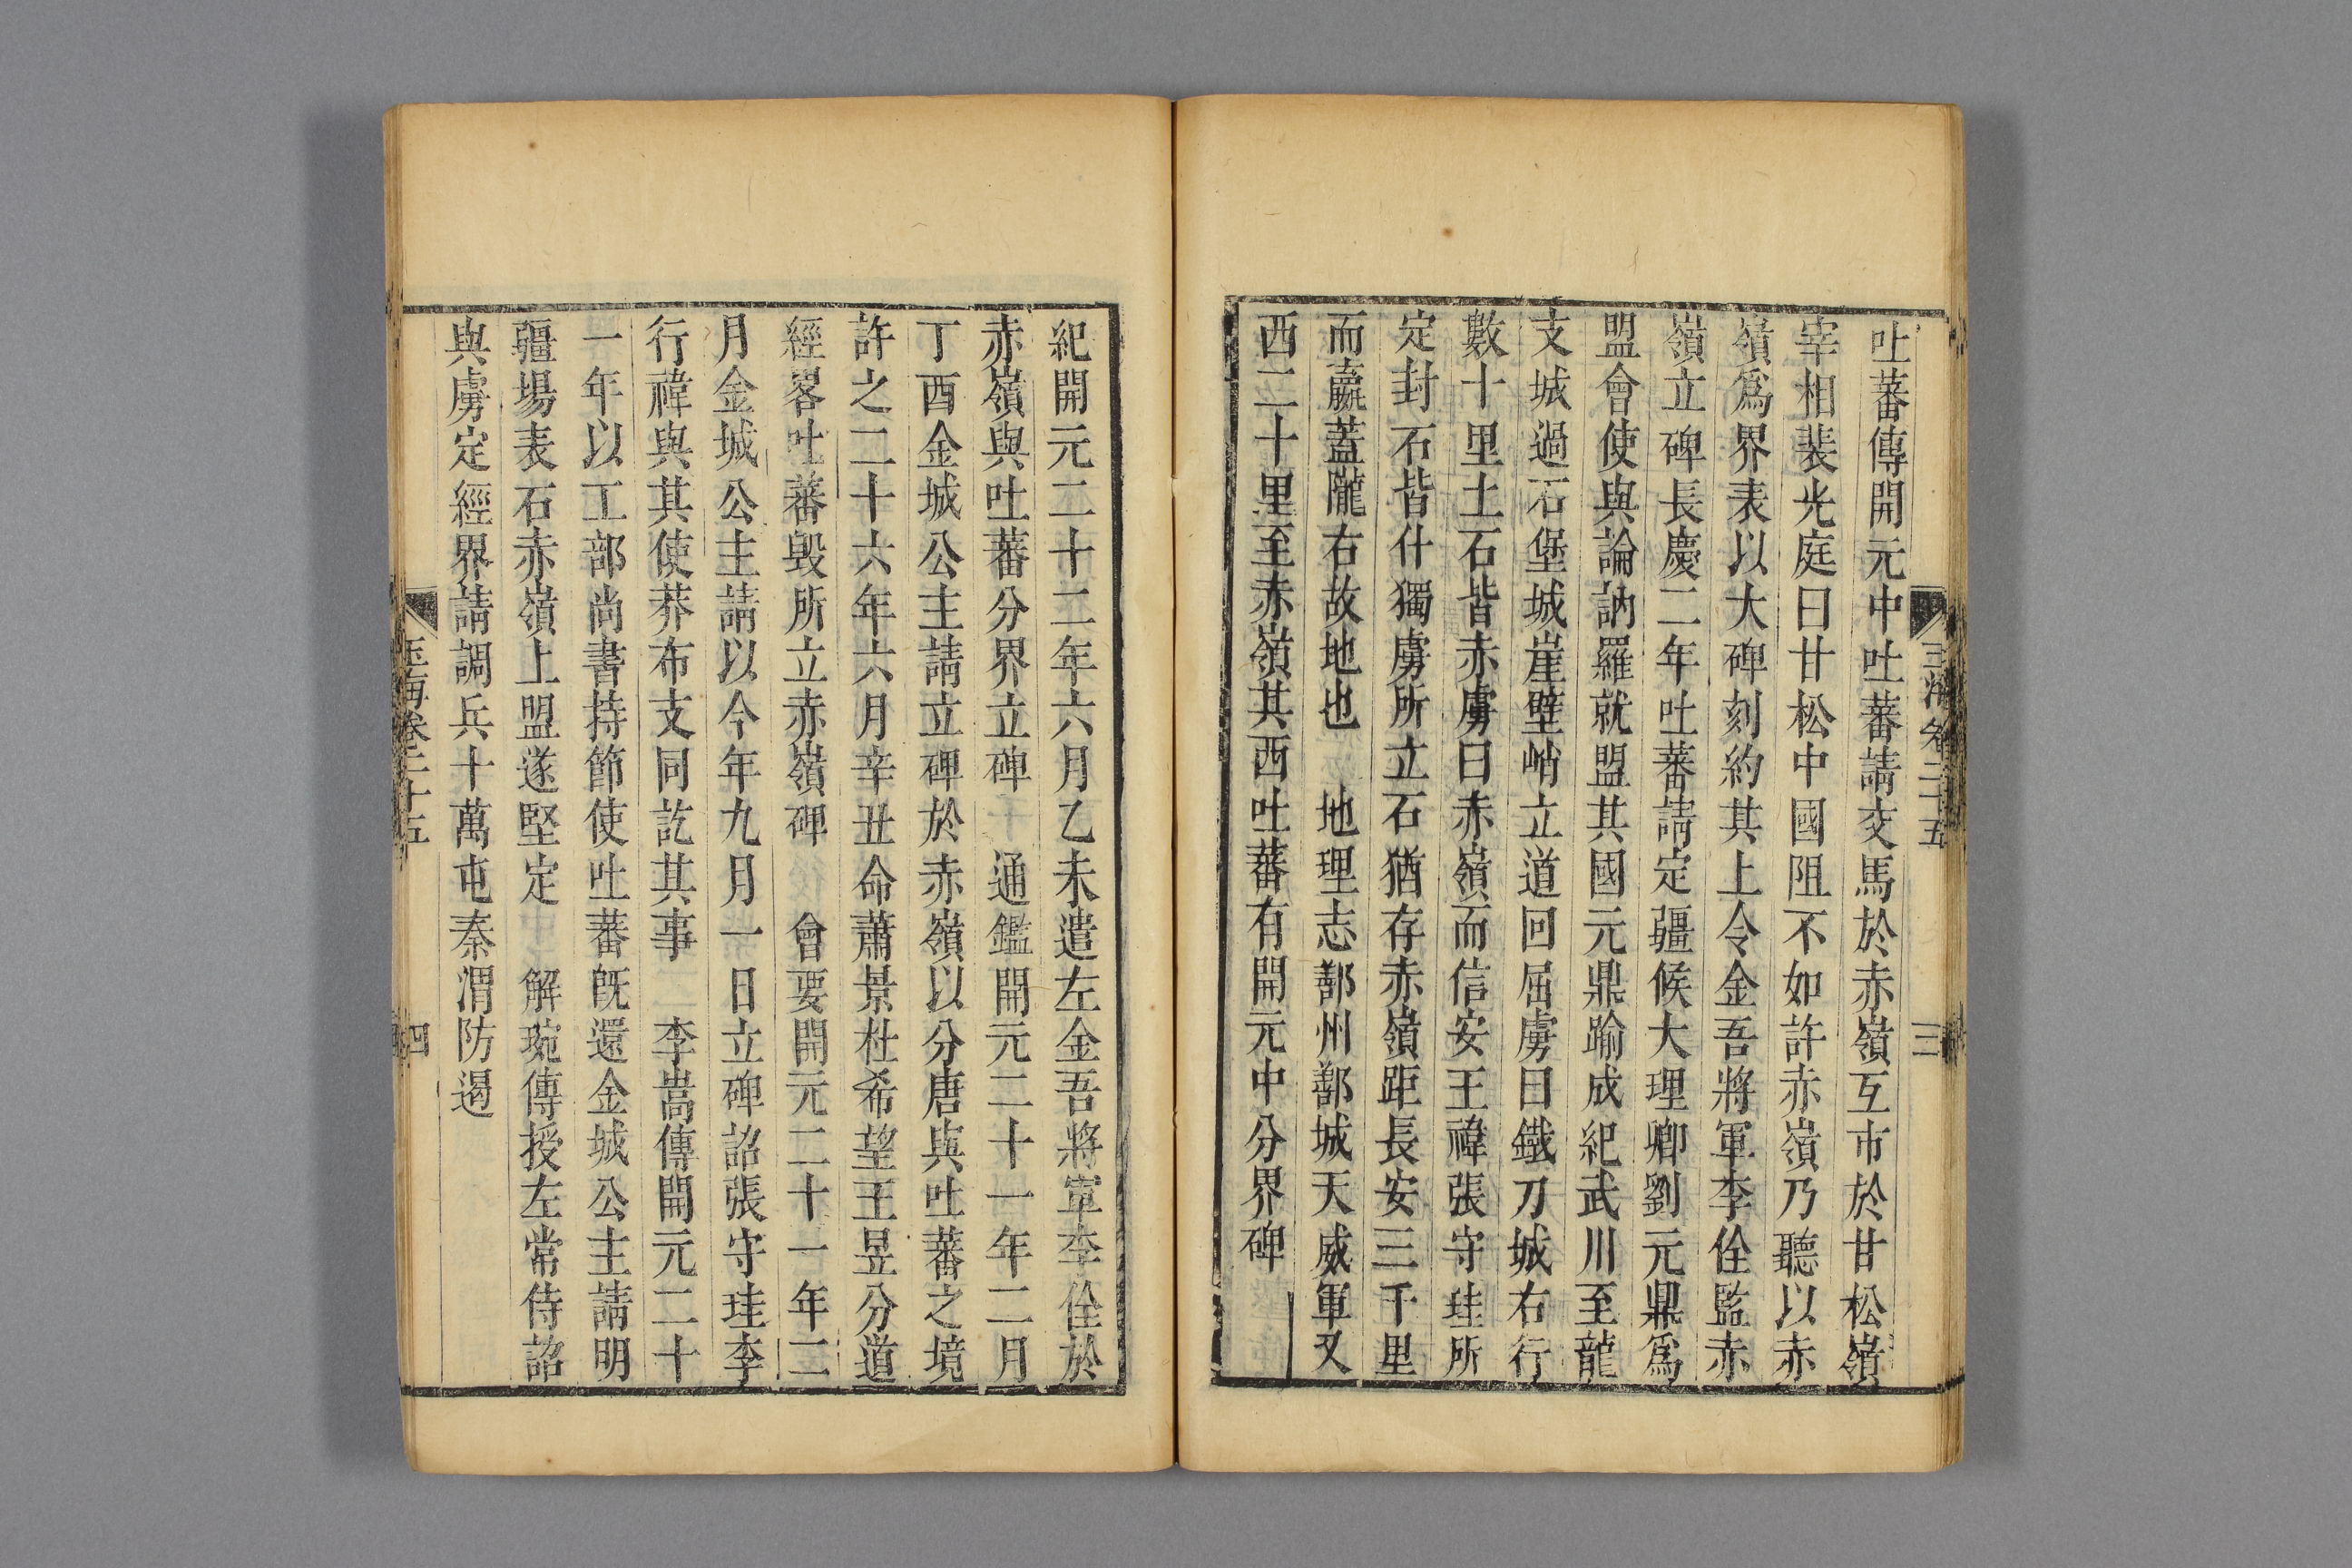 玉海卷二十五
三
吐蕃傳開元中吐蕃請交馬於赤嶺互市於甘松嶺
宰相裴光庭曰甘松中國阻不如許赤嶺乃聽以赤
嶺爲界表以大碑刻約其上令金吾將軍李佺監赤
嶺立碑長慶二年吐蕃請定疆候大理卿劉元鼎爲
盟會使與論訥羅就盟其國元鼎踰成紀武川至龍
支城過石堡城崖壁峭立道回屈虜曰鐵刀城右行
數十里土石皆赤虜曰赤嶺而信安王禕張守珪所
定封石皆仆獨虜所立石猶存赤嶺距長安三千里
而嬴蓋隴右故地也 地理志鄯州鄯城天威軍又
西二十里至赤嶺其西吐蕃有開元中分界碑
紀開元二十二年六月乙未遣左金吾將軍李佺於
赤嶺與吐蕃分界立碑 通鑑開元二十一年二月
丁酉金城公主請立碑於赤嶺以分唐與吐蕃之境
許之二十六年六月辛丑命蕭景杜希望王昱分道
經畧吐蕃毀所立赤嶺碑 會要開元二十一年二
月金城公主請以今年九月一日立碑詔張守珪李
行禕與其使莽布支同訖其事 李暠傳開元二十
一年以工部尚書持節使吐蕃旣還金城公主請明
疆場表石赤嶺上盟遂堅定 解琬傳授左常侍詔
與虜定經界請調兵十萬屯秦渭防遏
玉海卷二十五
四